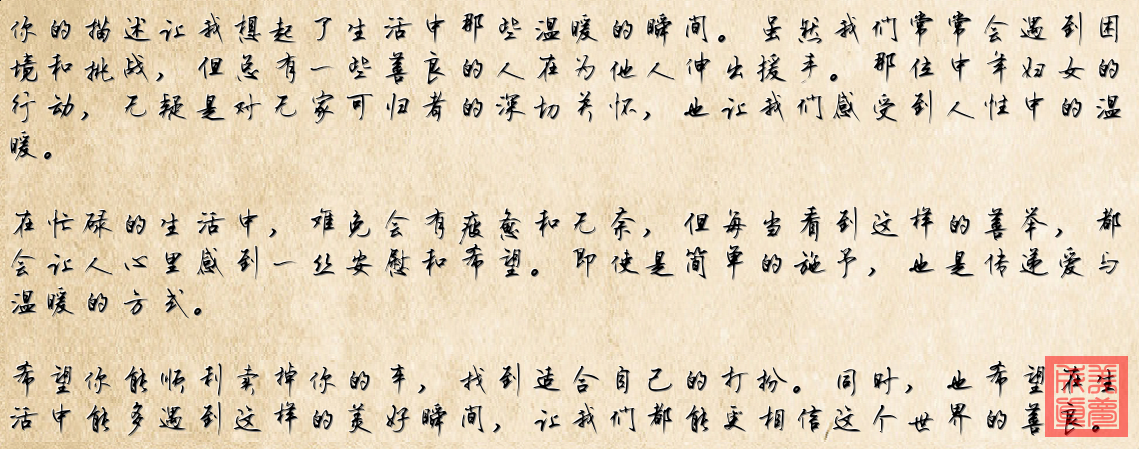 你的描述让我想起了生活中那些温暖的瞬间。虽然我们常常会遇到困
境和挑战，但总有一些善良的人在为他人伸出援手。那位中年妇女的
行动，无疑是对无家可归者的深切关怀，也让我们感受到人性中的温
暖。
在忙碌的生活中，难免会有疲惫和无奈，但每当看到这样的善举，都
会让人心里感到一丝安慰和希望。即使是简单的施予，也是传递爱与
温暖的方式。
希望你能顺利卖掉你的车，找到适合自己的打扮。同时，也希望在生
活中能多遇到这样的美好瞬间，让我们都能更相信这个世界的善良。